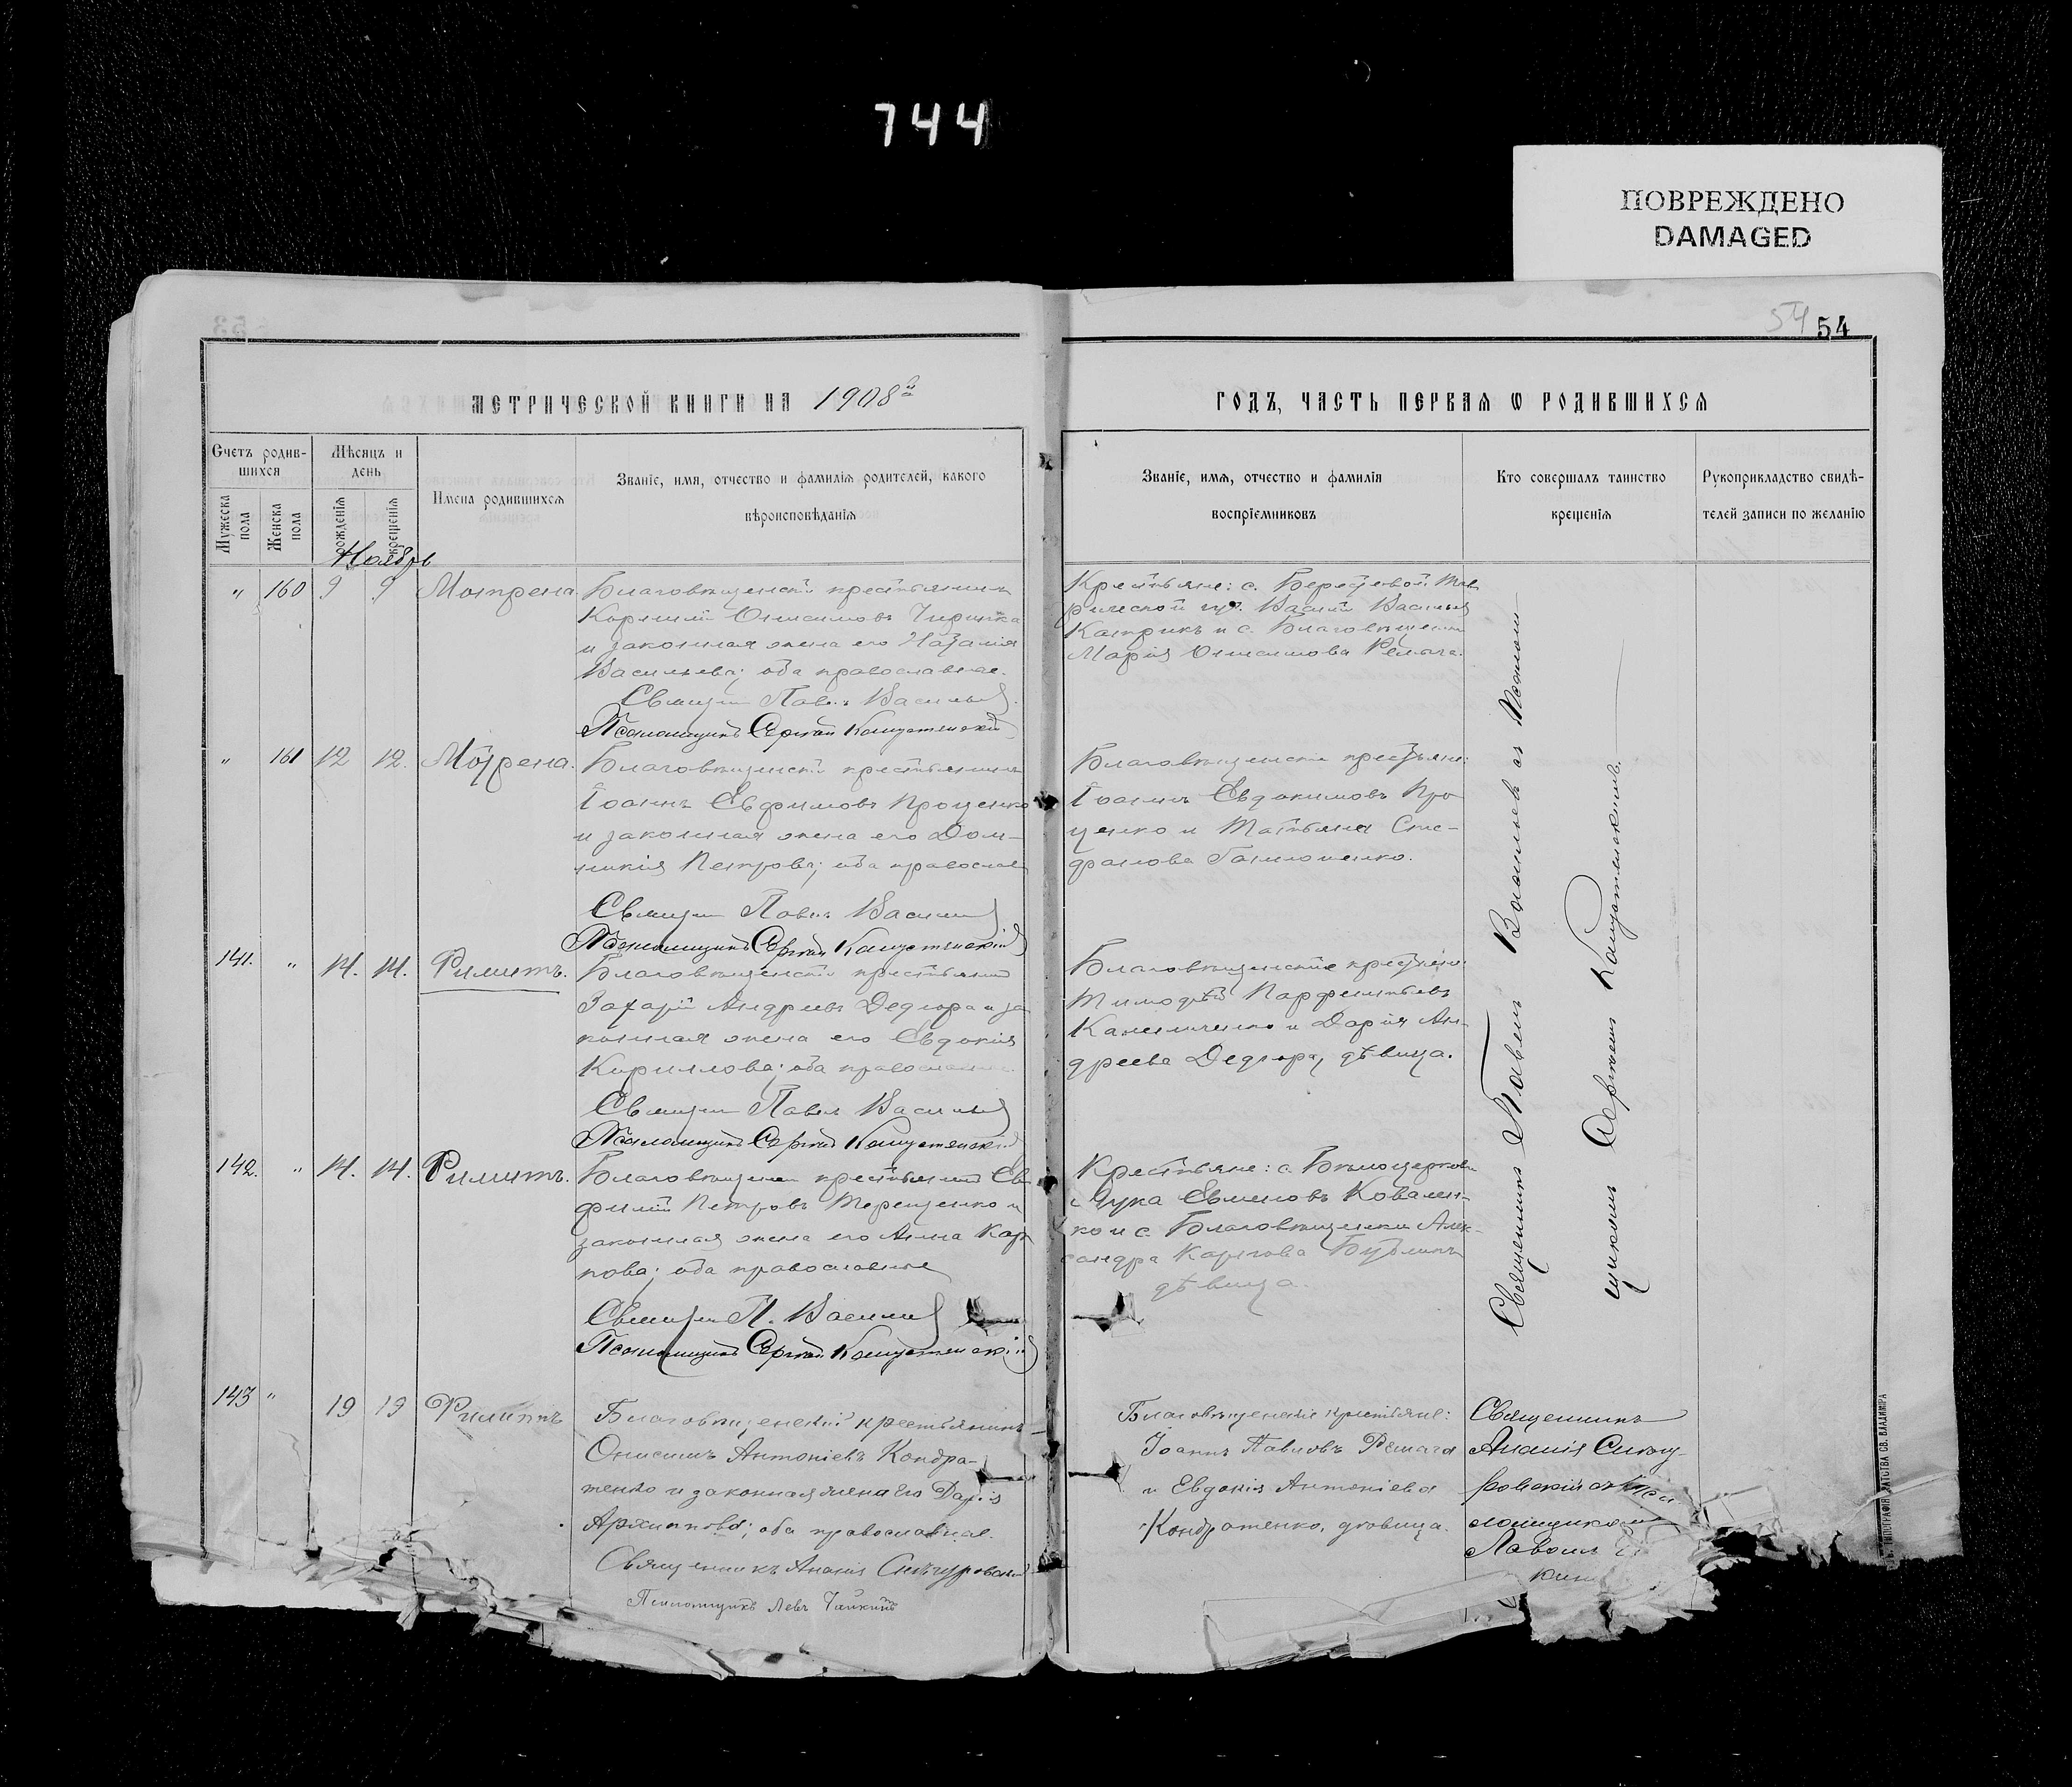 744
ПОВРЕЖДЕНО
DAMAGED
54 54
МЕТРИЧЕСКОЙ КНИГИ НА 1908й
ГОДЪ, ЧАСТЬ ПЕРВАЯ Ѡ РОДИВШИХСЯ
Счетъ родив-
шихся
Мужеска пола
Женска пола
Мѣсяцъ и
день
рожденія
крещенія
Имена родившихся
Званіе, имя, отчество и фамилія родителей, какого
вѣроисповѣданія
Званіе, имя, отчество и фамилія
воспріемниковъ
Кто совершалъ таинство
крещенія
Рукоприкладство свидѣ-
телей записи по желанію
Ноябрь
" 160 9 9 Мотрена
Благовѣщенскій крестьянинъ
Корнилій Онисимовъ
и законная жена его
Васильева; оба православные.
Священ Павелъ Васильев
Псаломщикъ Сергій Капустянскій
Крестьяне: с. Берестовой Тав-
рической губ. Василій Васильев
Катрикъ и с. Благовѣщенки
Марія Онисимова Ремага.
" 161 12 12. Мотрена.
Благовѣщенскій крестьянинъ
Іоаннъ Евфимовъ Проценко
и законная жена его Дом-
никія Петрова; оба православ
Священ Павелъ Васильев
Псаломщикъ Сергій Капустянскій
Благовѣщенскіе крестьяне:
Іоаннъ Евдокимовъ Про-
ценко и Татьяна Спи-
дчонова
141. " 14. 14. Филиппъ.
Благовѣщенскій крестьянин
Захарій Андреевъ Дедюра и за
конная жена его Евдокія
Кириллова; оба православные.
Священ Павелъ Васильев
Псаломщикъ Сергій Капустянскій
Благовѣщенскіе крестьяне:
Тимофей Парфентьевъ
и Дарія Ан-
дреева Дедюра, дѣвица.
142. " 14. 14. Филиппъ.
Благовѣщен крестьянин Ев
фимій Петровъ Терещенко и
законная жена его Анна Кар
пова; оба православные
Священ П. Васильев
Псаломщикъ Сергій Капустянскій
Крестьяне: с. Бѣлоцерковки
Лука Евменовъ Ковален-
ко и с. Благовѣщенки Алек-
сандра Карпова
дѣвица.
Священникъ Павелъ Васильевъ съ Псалом-
щикомъ Сергіемъ Капустянскимъ.
143 " 19 19 Филиппъ
Благовѣщенскій крестьянинъ
Онисимъ Антоніевъ Кондра-
тенко и законная жена его Дарія
Архиппова; оба православные.
Священникъ Ананія Снѣгуровскій
Псаломщикъ Левъ Чайкинъ
Благовѣщенскіе крестьяне:
Іоаннъ Павловъ Ремага
и Евдокія Антоніева
Кондратенко, дѣвица.
Священникъ
Ананія Снѣгу-
ровскій съ Пса-
ломщикомъ
Львомъ
ТИПОГРАФІЯ БРАТСТВА СВ. ВЛАДИМІРА